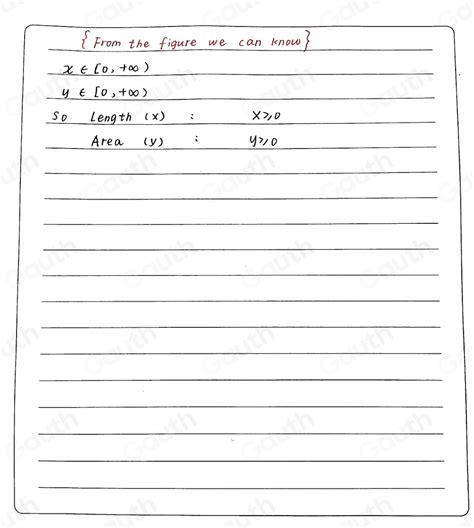 {From the figure we can know}
x ∈ [0, +∞)
y ∈ [0, +∞)
So Length (x) : x⩾0
Area (y) : y⩾0